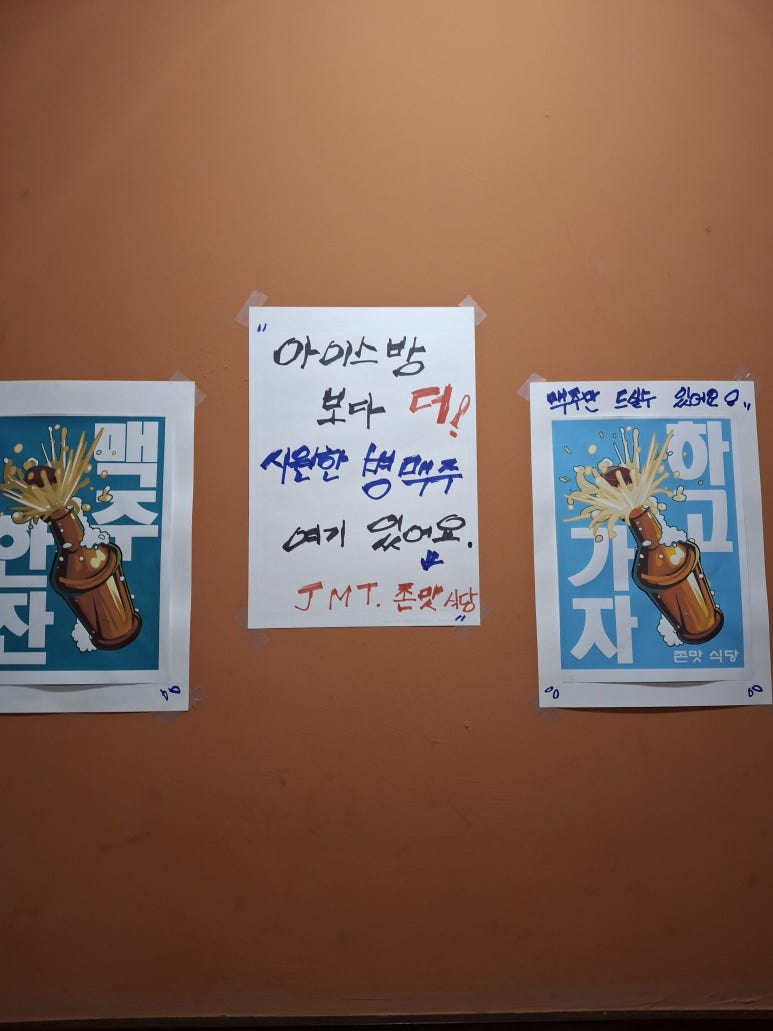 맥주
한잔
아이스 방
보다 더!
시원한 병맥주
여기 있어요.
JMT. 존맛 식당
맥주만 드실수 있어요
하고
가자
존맛 식당